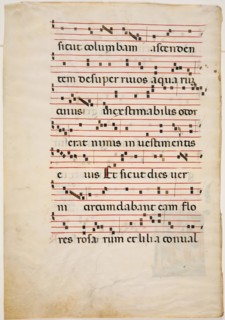 sicut columbam ascenden
tem desuper rivos aquarũ
cuius inextimabilis odor
inerat nimis in vestimentis
e ius Et sicut dies ver
ni circumdabant eam flo
res rosarum et lilia conval